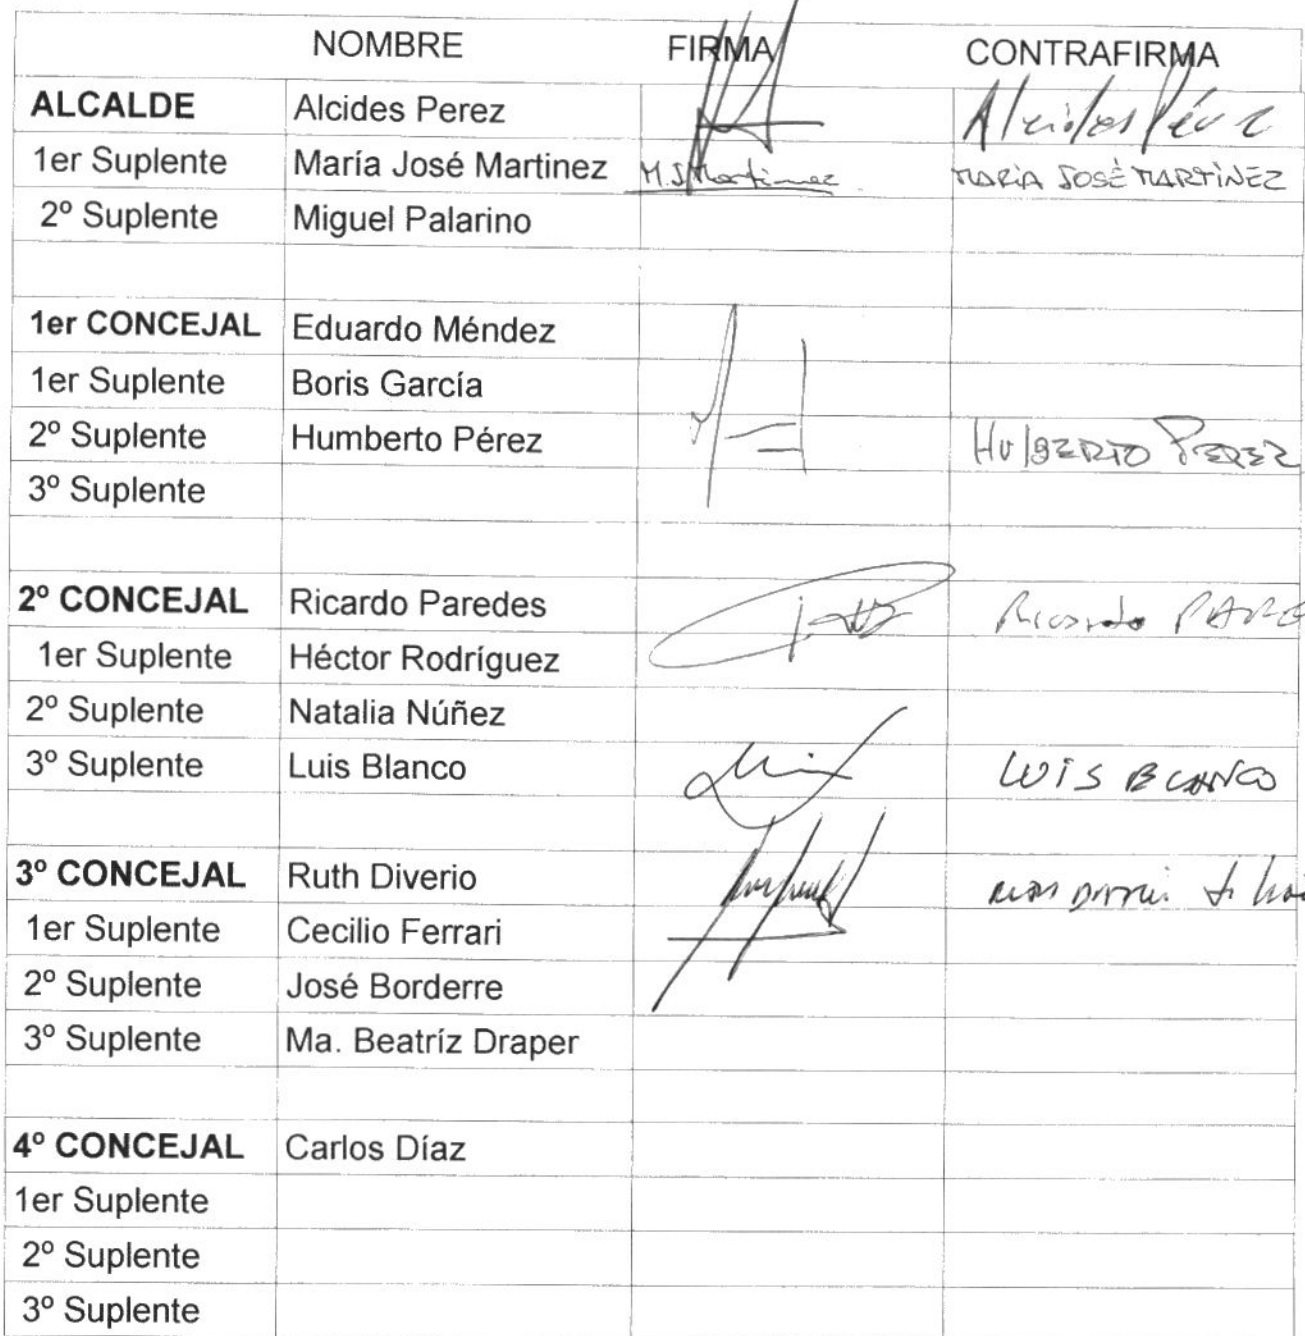 NOMBRE FIRMA CONTRAFIRMA
ALCALDE Alcides Perez Alcides Pérez
1er Suplente María José Martinez M.J.Martinez MARÍA JOSÉ MARTÍNEZ
2º Suplente Miguel Palarino
1er CONCEJAL Eduardo Méndez
1er Suplente Boris García
2º Suplente Humberto Pérez HUMBERTO PEREZ
3º Suplente
2º CONCEJAL Ricardo Paredes Ricardo PARE
1er Suplente Héctor Rodríguez
2º Suplente Natalia Núñez
3º Suplente Luis Blanco LUIS BLANCO
3º CONCEJAL Ruth Diverio
1er Suplente Cecilio Ferrari
2º Suplente José Borderre
3º Suplente Ma. Beatríz Draper
4º CONCEJAL Carlos Díaz
1er Suplente
2º Suplente
3º Suplente